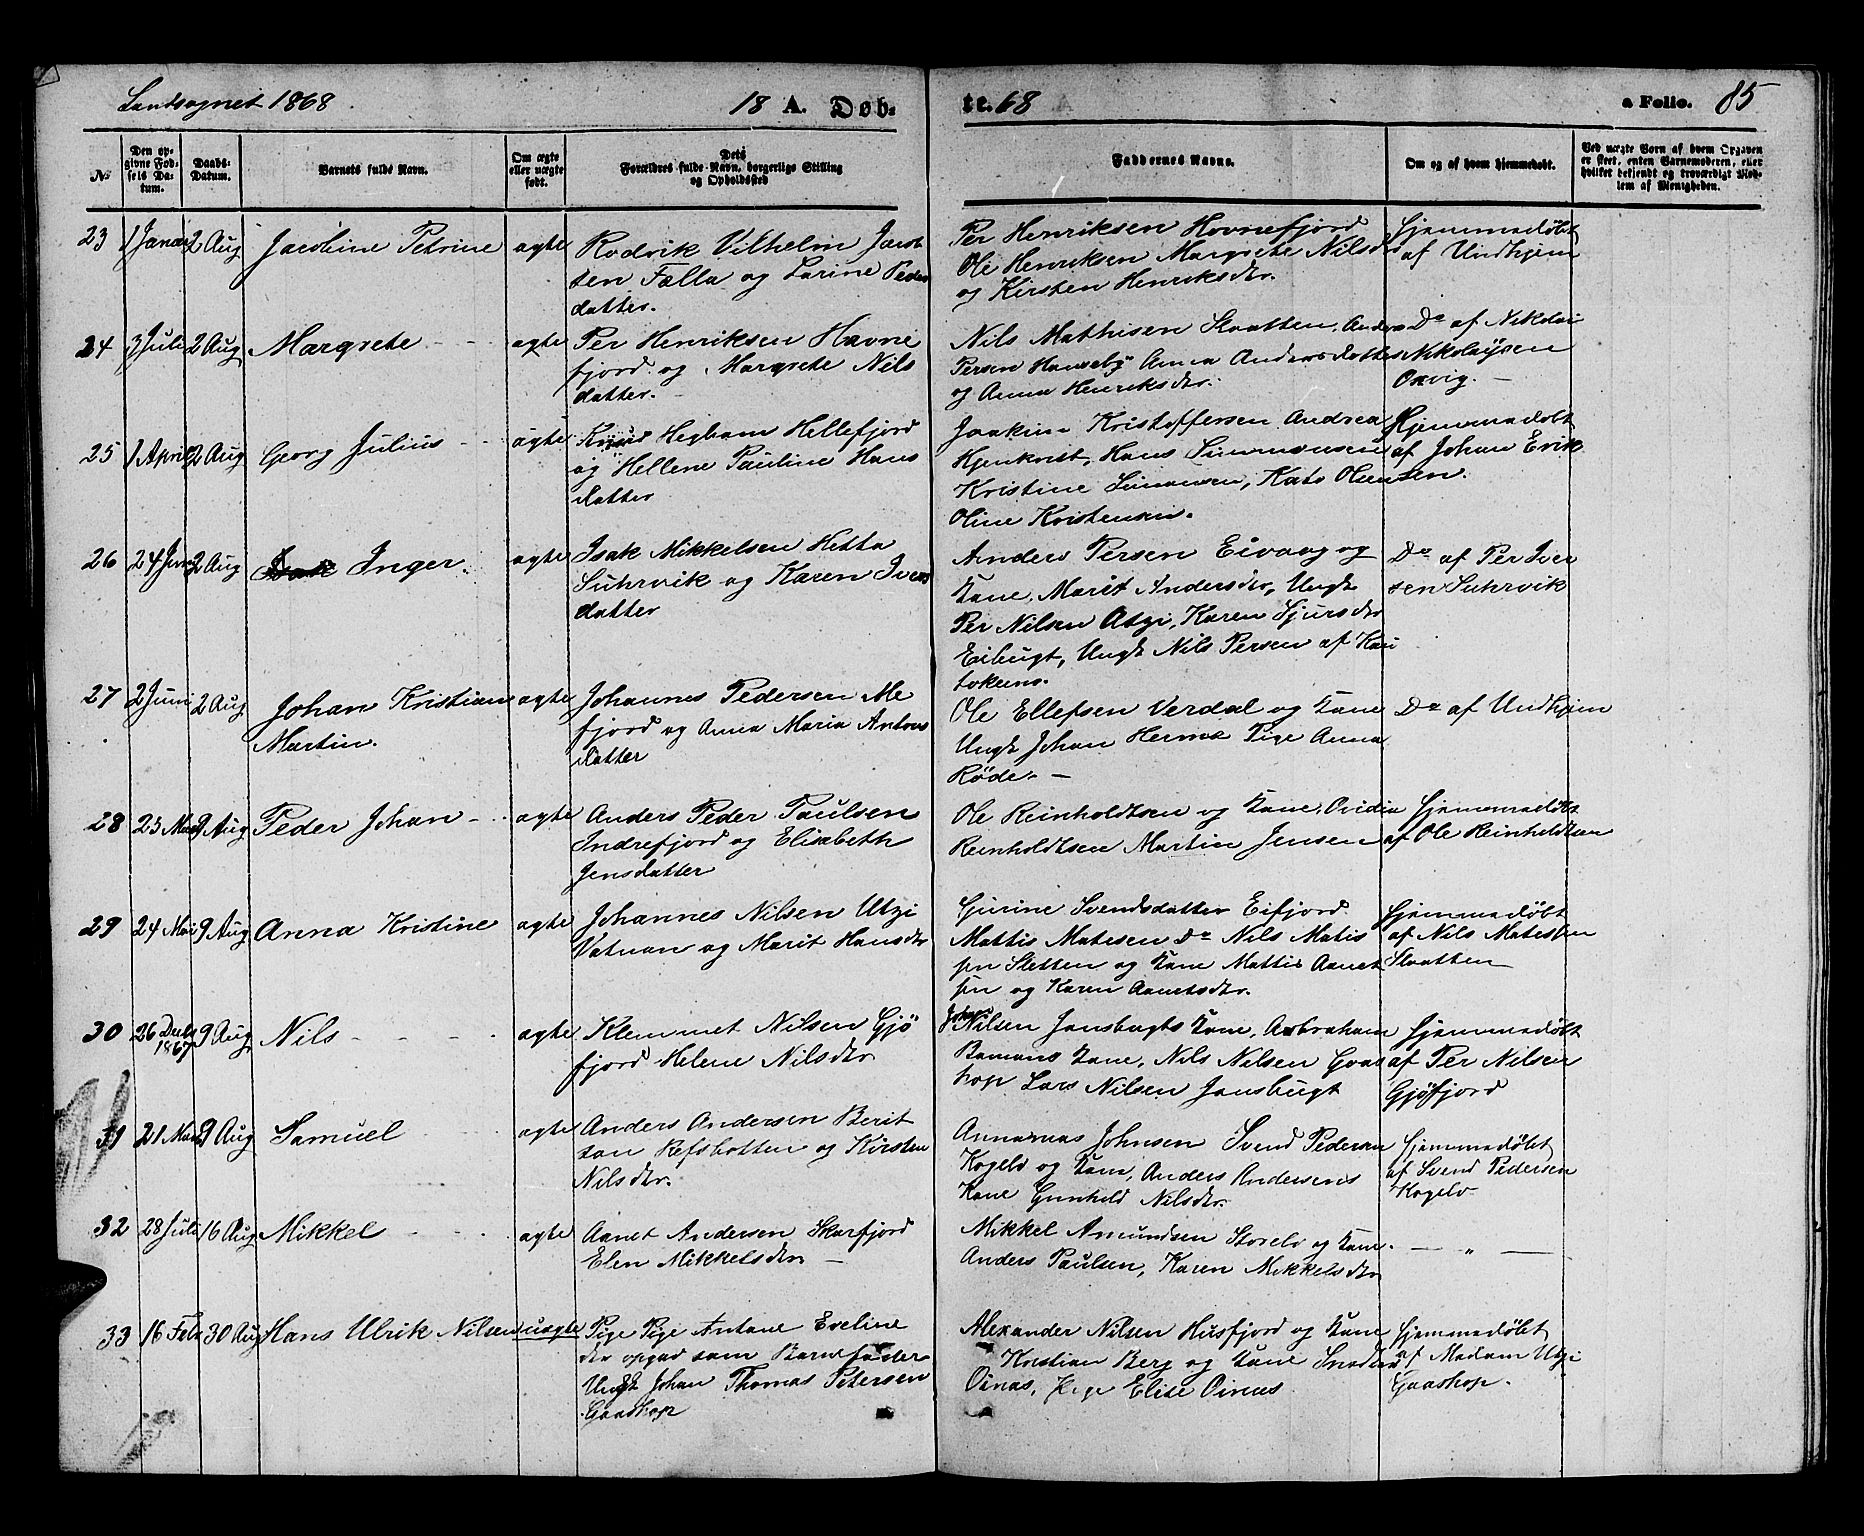 Landsognet 1868
18 A. Døb-
te. 68
a Folio. 85
No
Den op-
givne Fød-
sels Da-
tum.
Daabs-
Datum.
Barnets fulde Navn.
Om ægte
eller uægte
født.
Dets
Forældres fulde Navn, borgerlige Stilling
og Opholdssted
Faddernes Navne.
Om og af hvem hjemmedøbt.
Ved uægte Born af hvem Opgaven
er skeet, enten Barnemoderen, eller
hvilket bekjendt og troværdigt Med-
lem af Menigheden.
23 1 Januar 2 Aug Jacobine Petrine ægte
Rodvik Vilhelm Jacob
sen Fælla og Larine Peders
datter.
Per Henriksen Hovnefjord
Ole Henriksen Margrete Nilsdtr
og Kirsten Henriksdtr.
Hjemmedøbt
af Undhjem
24 3 Juli 2 Aug Margrete - - ægte
Per Henriksen Havne
fjord og Margrete Nils
datter.
Nils Mathisen Slaatten, Anders
Persen Hanseby Anna Andersdatter
og Anna Henriksdtr.
Do af Nikolai
Nikolaysen
Oxvig. -
25 1 April 2 Aug Georg Julius - - ægte
Knud Hegbom Hellefjord
og Hellene Pauline Hans
datter
Joakim Kristoffersen Andrea
Hjenkvist, Hans Simonsen
Kristine Simonsen, Kato Olensen
Oline Kristensen.
Hjemmedøbt
af Johan Erik
sen.
26 24 Juni 2 Aug Inger. ægte
Isak Mikkelsen Hetta
Suhrvik og Karen Ivers
datter
Anders Persen Eivaag og
Kane, Marit Andersdtr, Ungk
Per Nilsen Atzi, Karen Sjursdtr
Eibugt, Ungk Nils Persen af Kau
tokeino.
Do af Per Iver
sen Suhrvik
27 2 Juni 2 Aug Johan Kristian
Martin. ægte
Johannes Pedersen Me
fjord og Anna Maria Antons
datter
Ole Ellefsen Verdal og Kane
Ungk Johan Herme Pige Anna
Röde. -
Do af Undhjem
28 25 Mai 9 Aug Peder Johan - - ægte
Anders Peder Paulsen
Indrefjord og Elisabeth
Jensdatter
Ole Reinholdtsen og Kane, Ovidia
Reinholdtsen Martin Jensen
Hjemmedøbt
af Ole Reinholdtsen
29 24 Mai 9 Aug Anna Kristine ægte
Johannes Nilsen Utzi
Vatnan og Marit Hansdtr
Gjurine Svendsdatter Eifjord.
Mattis Matesen Do Nils Matis
sen Sletten og Kane Mattis Aanet
sen og Karen Aanetsdtr.
Hjemmedøbt
af Nils Matessen
Slaatten
30 26 Decbr
1867 9 Aug Nils - - - - ægte
Klemmet Nilsen Gjö
fjord Helene Nilsdtr
Johans Nilsen Jansbugts Kane, Aabraham
Bomans Kane, Nils Nilsen Gaas
hop Lars Nilsen Jansbugt
Hjemmedøbt
af Per Nilsen
Gjöfjord
31 21 Mai 9 Aug Samuel - - - ægte
Anders Andersen Berit
san Refsbotten og Kirsten
Nilsdtr.
Annanias Johnsen Svend Pedersen
Kogelv og Kane, Anders Andersens
Kane Gunhild Nilsdtr.
Hjemmedøbt
af Svend Pedersen
Kogelv
32 28 Juli 16 Aug Mikkel - - - ægte
Aanet Andersen Skarfjord
Elen Mikkelsdtr -
Mikkel Amundsen Storelv og Kane.
Anders Paulsen, Karen Mikkelsdtr
— „ —
33 16 Febr 30 Aug Hans Ulrik Nilsen uægte
Pige Pige Antane Eveline
der opgav som Barnefader
Ungk Johan Thomas Petersen
Gaashop
Alexander Nilsen Husfjord og Kane
Kristian Berg og Kane
Oinas, Pige Elise Oinas
Hjemmedøbt
af Madam Utzi
Gaashop.